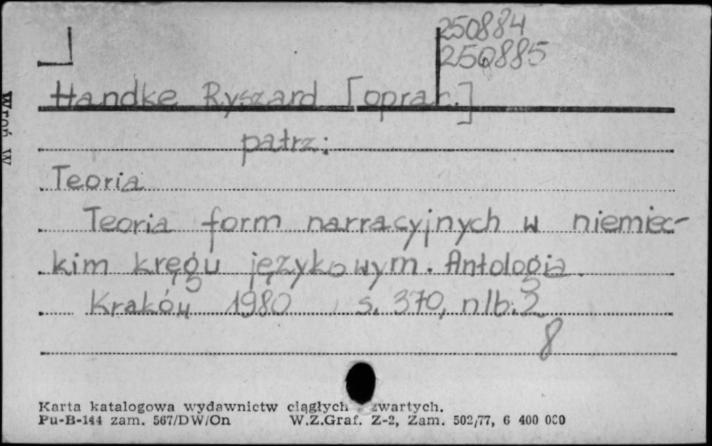 250884
250885
Handke Ryszard [oprac.]
patrz:
Teoria
Teoria form narracyjnych w niemiec-
kim kręgu językowym. Antologia.
Kraków 1980 s. 370, nlb. 2
8
Karta katalogowa wydawnictw ciągłych zwartych.
Pu-B-144 zam. 567/DW/On W.Z.Graf. Z-2, Zam. 502/77, 6 400 000